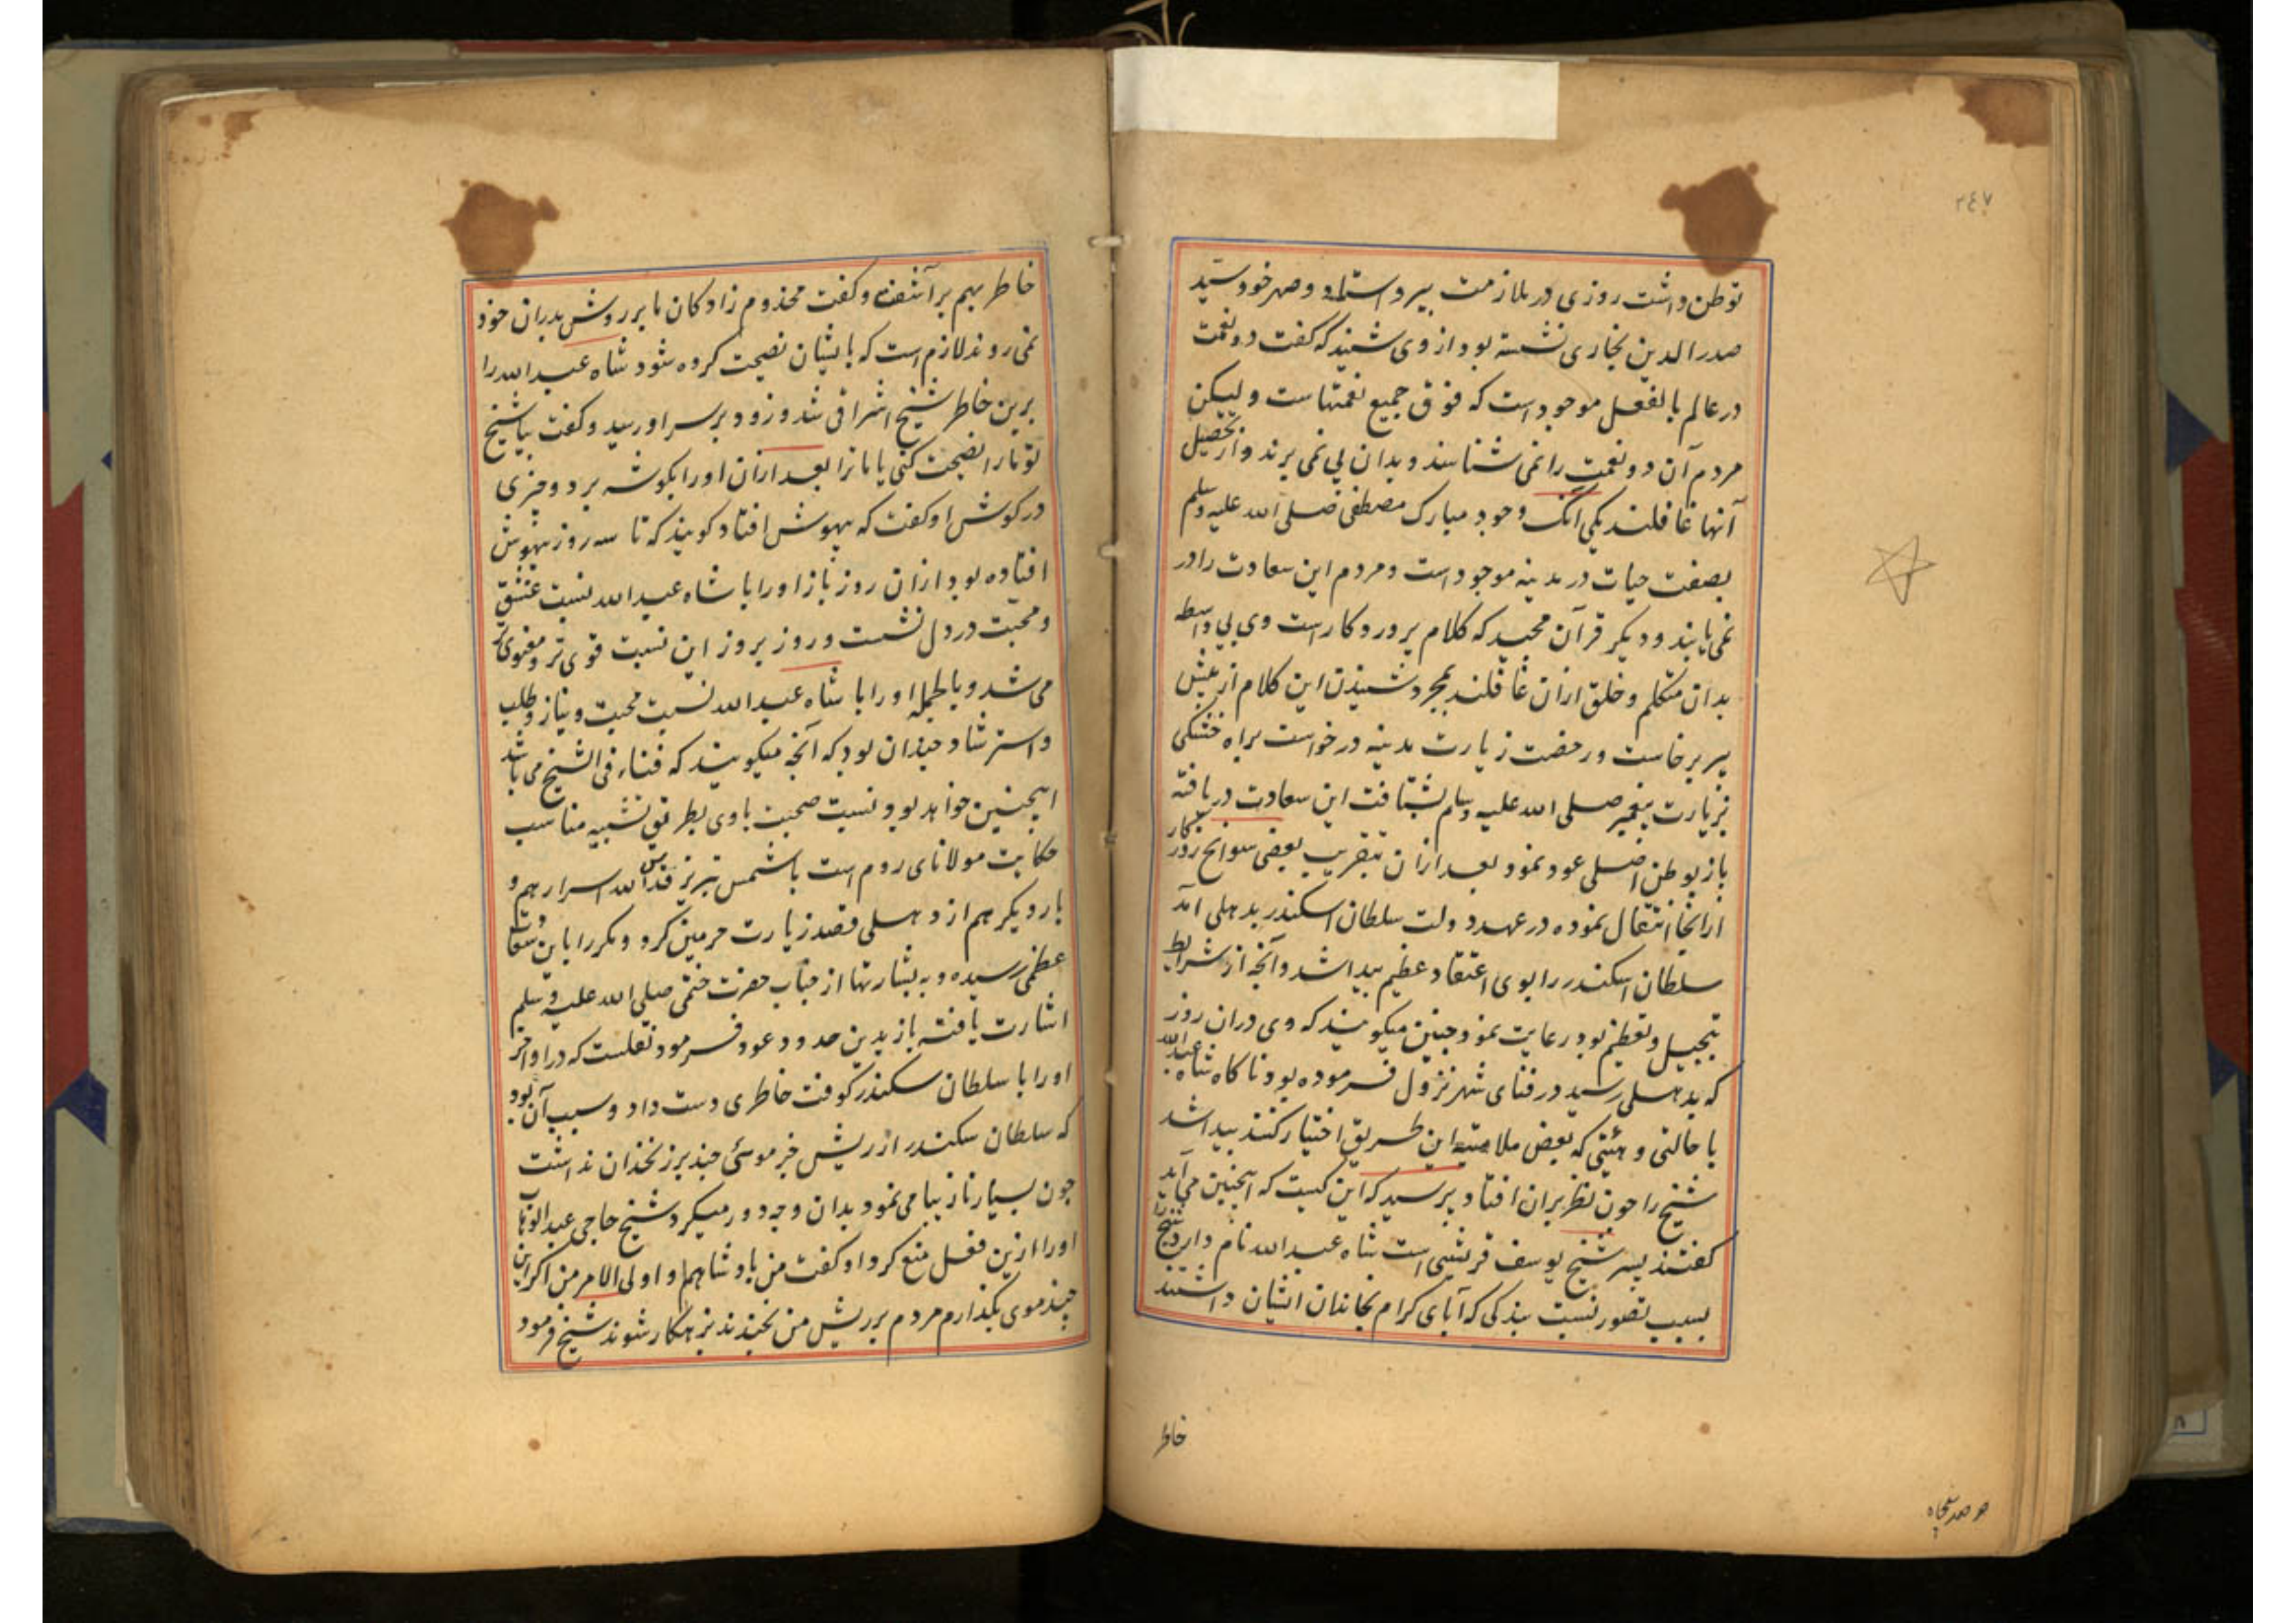 ۲۴۷
توطن داشت روزی در ملازمت پیر و استاد و صهر خود سید
صدر الدین بخاری نشسته بود از وی شنید که گفت دو نعمت
در عالم بالفعل موجود است که فوق جمیع نعمتهاست و لیکن
مردم آن دو نعمت را نمی شناسند و بدان پی نمی برند و از تحصیل
آنها غافلند یکی آنکه وجود مبارک مصطفی صلی الله علیه وسلم
بصفت حیات در مدینه موجود است و مردم این سعادت را در
نمی یابند و دیگر قرآن مجید که کلام پروردگار است و وی بی واسطه
بدان متکلم و خلق ازان غافلند بمجرد شنیدن این کلام از پیش
پیر برخاست و رخصت زیارت مدینه درخواست براه خشکی
بزیارت پیغمبر صلی الله علیه وسلم بشتافت این سعادت دریافته
باز بوطن اصلی عود نمود بعد ازان بتقریب بعضی سوانح روزگار
ازانجا انتقال نموده در عهد دولت سلطان اسکندر بدهلی آمد
سلطان اسکندر را بوی اعتقاد عظیم پیدا شد و آنچه از شرایط
تبجیل و تعظیم بود رعایت نمود چنین میگویند که وی دران روز
که بدهلی رسید در فنای شهر نزول فرموده بود ناگاه شاه عبد الله
با حالتی و هیئتی که بعض ملامتیه این طریق اختیار کنند پیدا شد
شیخ را چون نظر بران افتاد پرسید که این کیست که اینچنین می آید
گفتند پسر شیخ یوسف قریشی است شاه عبد الله نام دارد شیخ را
بسبب تصور نسبت بندگی که آبای کرام بخاندان ایشان داشتند
خاطر
خاطر بهم برآشفت و گفت مخدوم زادگان ما بر روش پدران خود
نمی روند لازم است که بایشان نصیحت کرده شود شاه عبد الله را
برین خاطر شیخ اشراقی شد و زود بر سر او رسید و گفت بیا شیخ
تو ما را نصیحت کنی یا ما ترا بعد ازان او را بگوشه برد و چیزی
در گوش او گفت که بیهوش افتاد گویند که تا سه روز بیهوش
افتاده بود ازان روز باز او را با شاه عبد الله نسبت عشق
و محبت در دل نشست و روز بروز این نسبت قوی تر و معنوی تر
می شد و بالجمله او را با شاه عبد الله نسبت محبت و نیاز و طلب
و استرشاد چندان بود که آنچه میگویند که فناء فی الشیخ می باشد
اینچنین خواهد بود و نسبت صحبت با وی بطریق تشبیه مناسب
حکایت مولانای روم است با شمس تبریز قدس الله اسرارهم و
بار دیگر هم از دهلی قصد زیارت حرمین کرد و مکرر باین سعادت
عظمی رسیده و به بشارتها از جناب حضرت ختمی صلی الله علیه وسلم
اشارت یافته باز بدین حدود عود فرمود نقلست که در اواخر
او را با سلطان سکندر کوفت خاطری دست داد و سبب آن بود
که سلطان سکندر از ریش جز موئی چند بر زنخدان نداشت
چون بسیار نازیبا می نمود بدان وجه دور میکرد شیخ حاجی عبد الوهاب
او را ازین فعل منع کرد او گفت من بادشاهم و اولی الامر من اگر این
چند موی بگذارم مردم بر ریش من بخندند بزهکار شوند شیخ فرمود